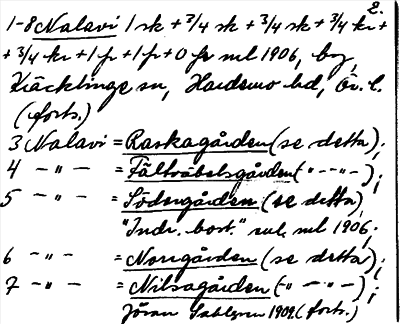 2.
1-8 Nalavi 1 sk + 3/4 sk + 3/4 sk + 3/4 kr +
+ 3/4 kr + 1 fr + 1 fr + 0 fr ml 1906, by,
Kräcklinge sn, Hardemo hd, Ör. l.
(forts.)
3 Nalavi = Raskagården (se detta);
4 -"- = Fältväbelsgården (-"--"-);
5 -"- = Södergården (se detta)
"Indr. bost." enl. ml 1906;
6 -"- = Norrgården (se detta);
7 -"- = Nilsagården (-"- -"-);
Jöran Sahlgren 1909. (forts.)